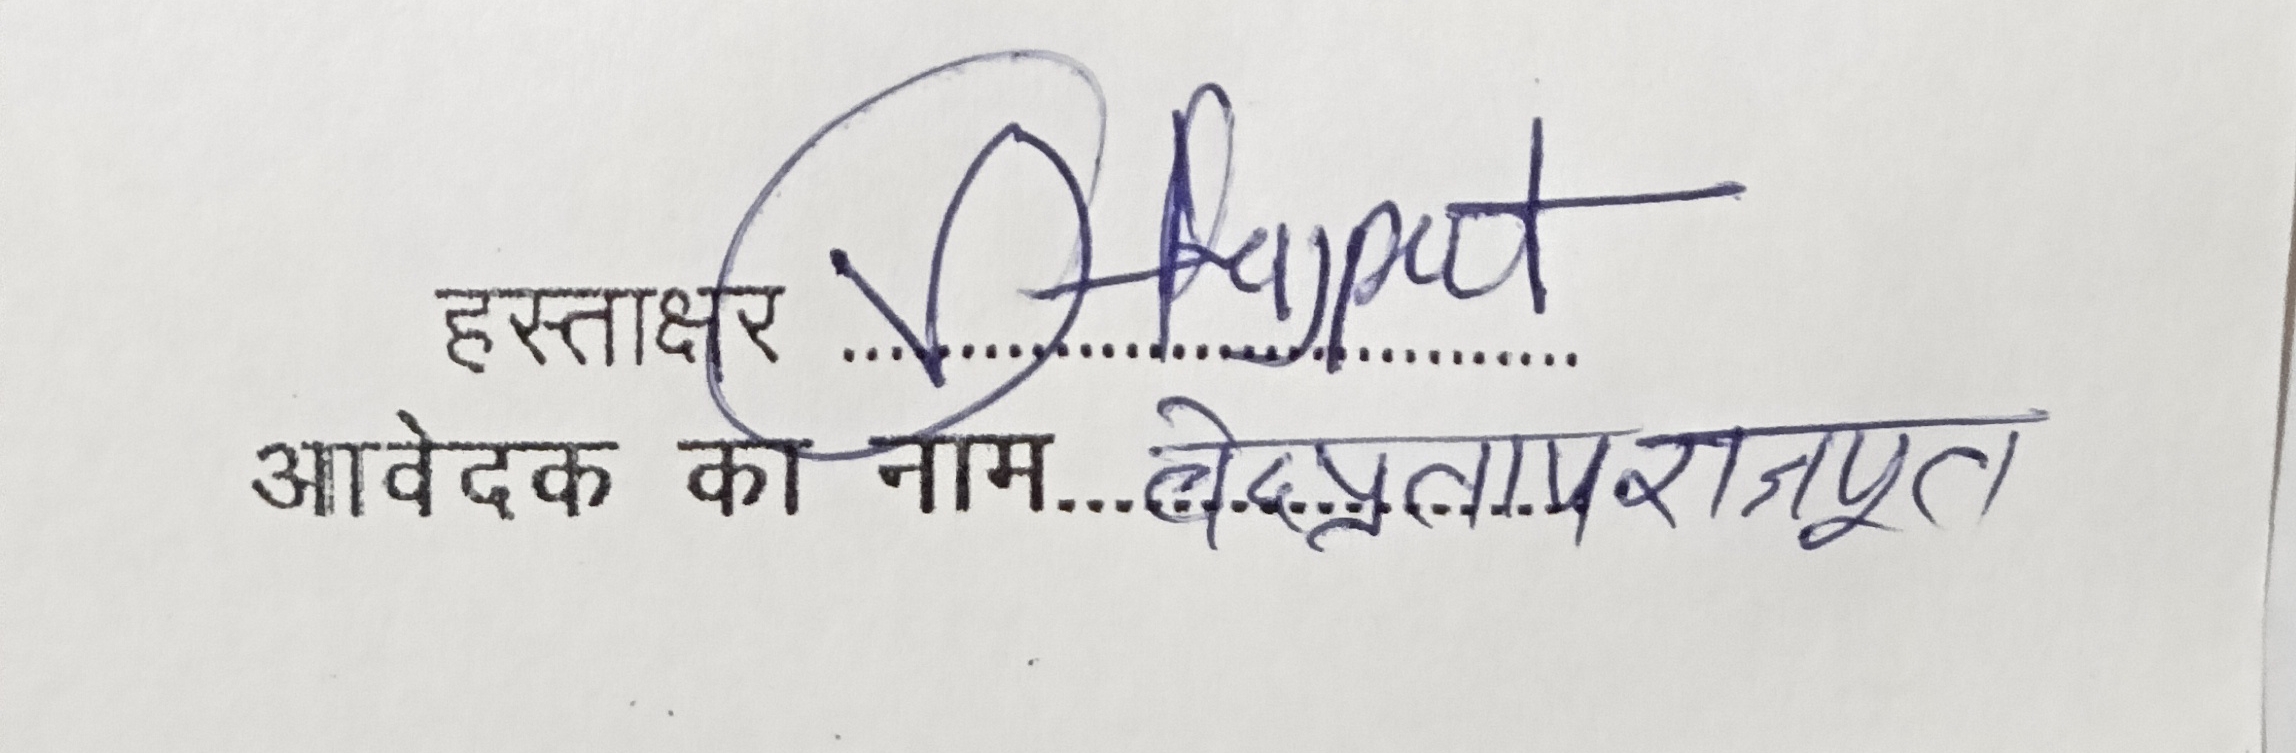 हस्ताक्षर .......... V Rajput
आवेदक का नाम.......... वेदप्रताप राजपूत